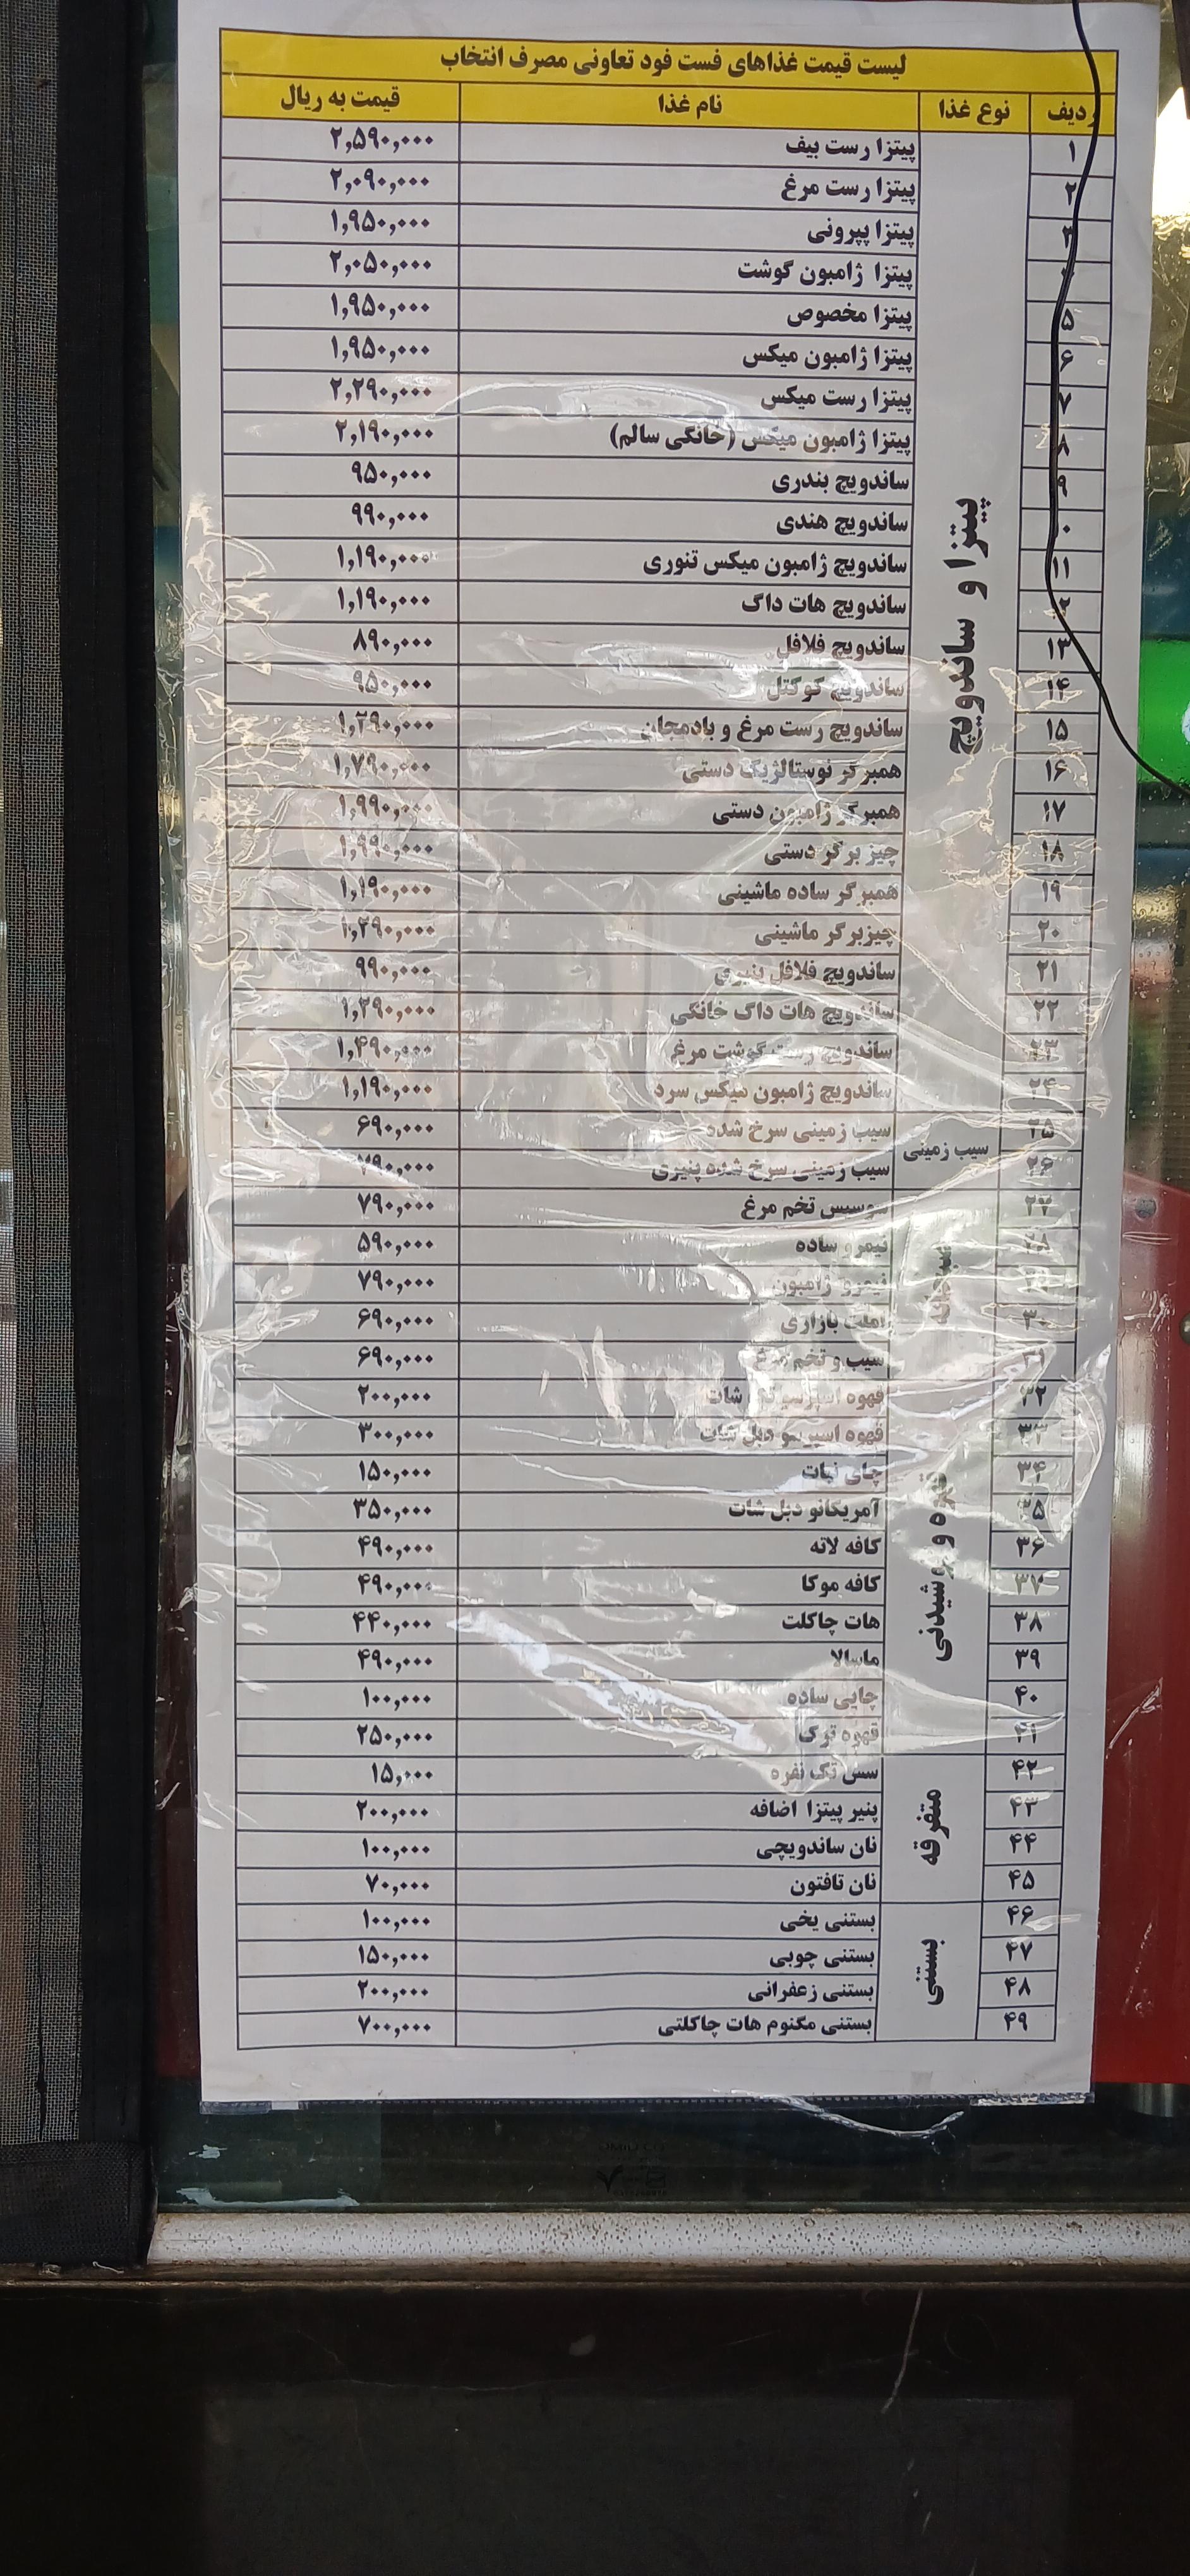 لیست قیمت غذاهای فست فود تعاونی مصرف انتخاب
ردیف نوع غذا نام غذا قیمت به ریال
پیتزا و ساندویچ
۱ پیتزا رست بیف ۲,۵۹۰,۰۰۰
۲ پیتزا رست مرغ ۲,۰۹۰,۰۰۰
۳ پیتزا پپرونی ۱,۹۵۰,۰۰۰
پیتزا ژامبون گوشت ۲,۰۵۰,۰۰۰
۵ پیتزا مخصوص ۱,۹۵۰,۰۰۰
۶ پیتزا ژامبون میکس ۱,۹۵۰,۰۰۰
۷ پیتزا رست میکس ۲,۲۹۰,۰۰۰
۸ پیتزا ژامبون میکس (خانگی سالم) ۲,۱۹۰,۰۰۰
۹ ساندویچ بندری ۹۵۰,۰۰۰
۱۰ ساندویچ هندی ۹۹۰,۰۰۰
۱۱ ساندویچ ژامبون میکس تنوری ۱,۱۹۰,۰۰۰
۱۲ ساندویچ هات داگ ۱,۱۹۰,۰۰۰
۱۳ ساندویچ فلافل ۸۹۰,۰۰۰
۱۴ ساندویچ کوکتل ۹۵۰,۰۰۰
۱۵ ساندویچ رست مرغ و بادمجان ۱,۲۹۰,۰۰۰
۱۶ همبرگر نوستالژیک دستی ۱,۷۹۰,۰۰۰
۱۷ همبرگر ژامبون دستی ۱,۹۹۰,۰۰۰
۱۸ چیز برگر دستی ۱,۹۹۰,۰۰۰
۱۹ همبرگر ساده ماشینی ۱,۱۹۰,۰۰۰
۲۰ چیزبرگر ماشینی ۱,۲۹۰,۰۰۰
۲۱ ساندویچ فلافل پنیری ۹۹۰,۰۰۰
۲۲ ساندویچ هات داگ خانگی ۱,۲۹۰,۰۰۰
۲۳ ساندویچ رست گوشت مرغ ۱,۴۹۰,۰۰۰
۲۴ ساندویچ ژامبون میکس سرد ۱,۱۹۰,۰۰۰
سیب زمینی
۲۵ سیب زمینی سرخ شده ۶۹۰,۰۰۰
۲۶ سیب زمینی سرخ شده پنیری ۷۹۰,۰۰۰
۲۷ سوسیس تخم مرغ ۷۹۰,۰۰۰
۲۸ نیمرو ساده ۵۹۰,۰۰۰
نیمرو ژامبون ۷۹۰,۰۰۰
۳۰ املت بازاری ۶۹۰,۰۰۰
۳۱ سیب و تخم مرغ ۶۹۰,۰۰۰
قهوه و نوشیدنی
۳۲ قهوه اسپرسو تک شات ۲۰۰,۰۰۰
۳۳ قهوه اسپرسو دبل شات ۳۰۰,۰۰۰
۳۴ چای نبات ۱۵۰,۰۰۰
۳۵ آمریکانو دبل شات ۳۵۰,۰۰۰
۳۶ کافه لاته ۴۹۰,۰۰۰
۳۷ کافه موکا ۴۹۰,۰۰۰
۳۸ هات چاکلت ۴۴۰,۰۰۰
۳۹ ماسالا ۴۹۰,۰۰۰
۴۰ چایی ساده ۱۰۰,۰۰۰
۴۱ قهوه ترک ۲۵۰,۰۰۰
متفرقه
۴۲ سس تک نفره ۱۵,۰۰۰
۴۳ پنیر پیتزا اضافه ۲۰۰,۰۰۰
۴۴ نان ساندویچی ۱۰۰,۰۰۰
۴۵ نان تافتون ۷۰,۰۰۰
بستنی
۴۶ بستنی یخی ۱۰۰,۰۰۰
۴۷ بستنی چوبی ۱۵۰,۰۰۰
۴۸ بستنی زعفرانی ۲۰۰,۰۰۰
۴۹ بستنی مگنوم هات چاکلتی ۷۰۰,۰۰۰